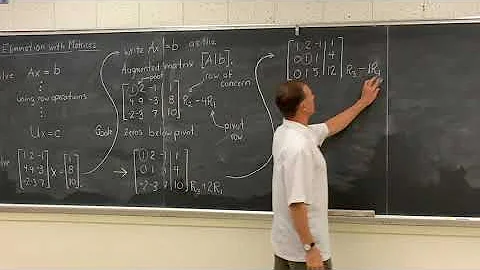 Elimination with Matrices
Solve Ax = b
using row operations
Ux = c
Solve
1 2 -1
4 9 -3
-2 -3 7
x =
1
8
10
write Ax = b as the
Augmented matrix [A|b].
pivot
row of concern
1 2 -1 1
4 9 -3 8
-2 -3 7 10
R2 - 4R1
pivot row
Goal: zeros below pivot.
→
1 2 -1 1
0 1 1 4
-2 -3 7 10
R3 + 2R1
1 2 -1 1
0 1 1 4
0 1 5 12
R3 - 1R